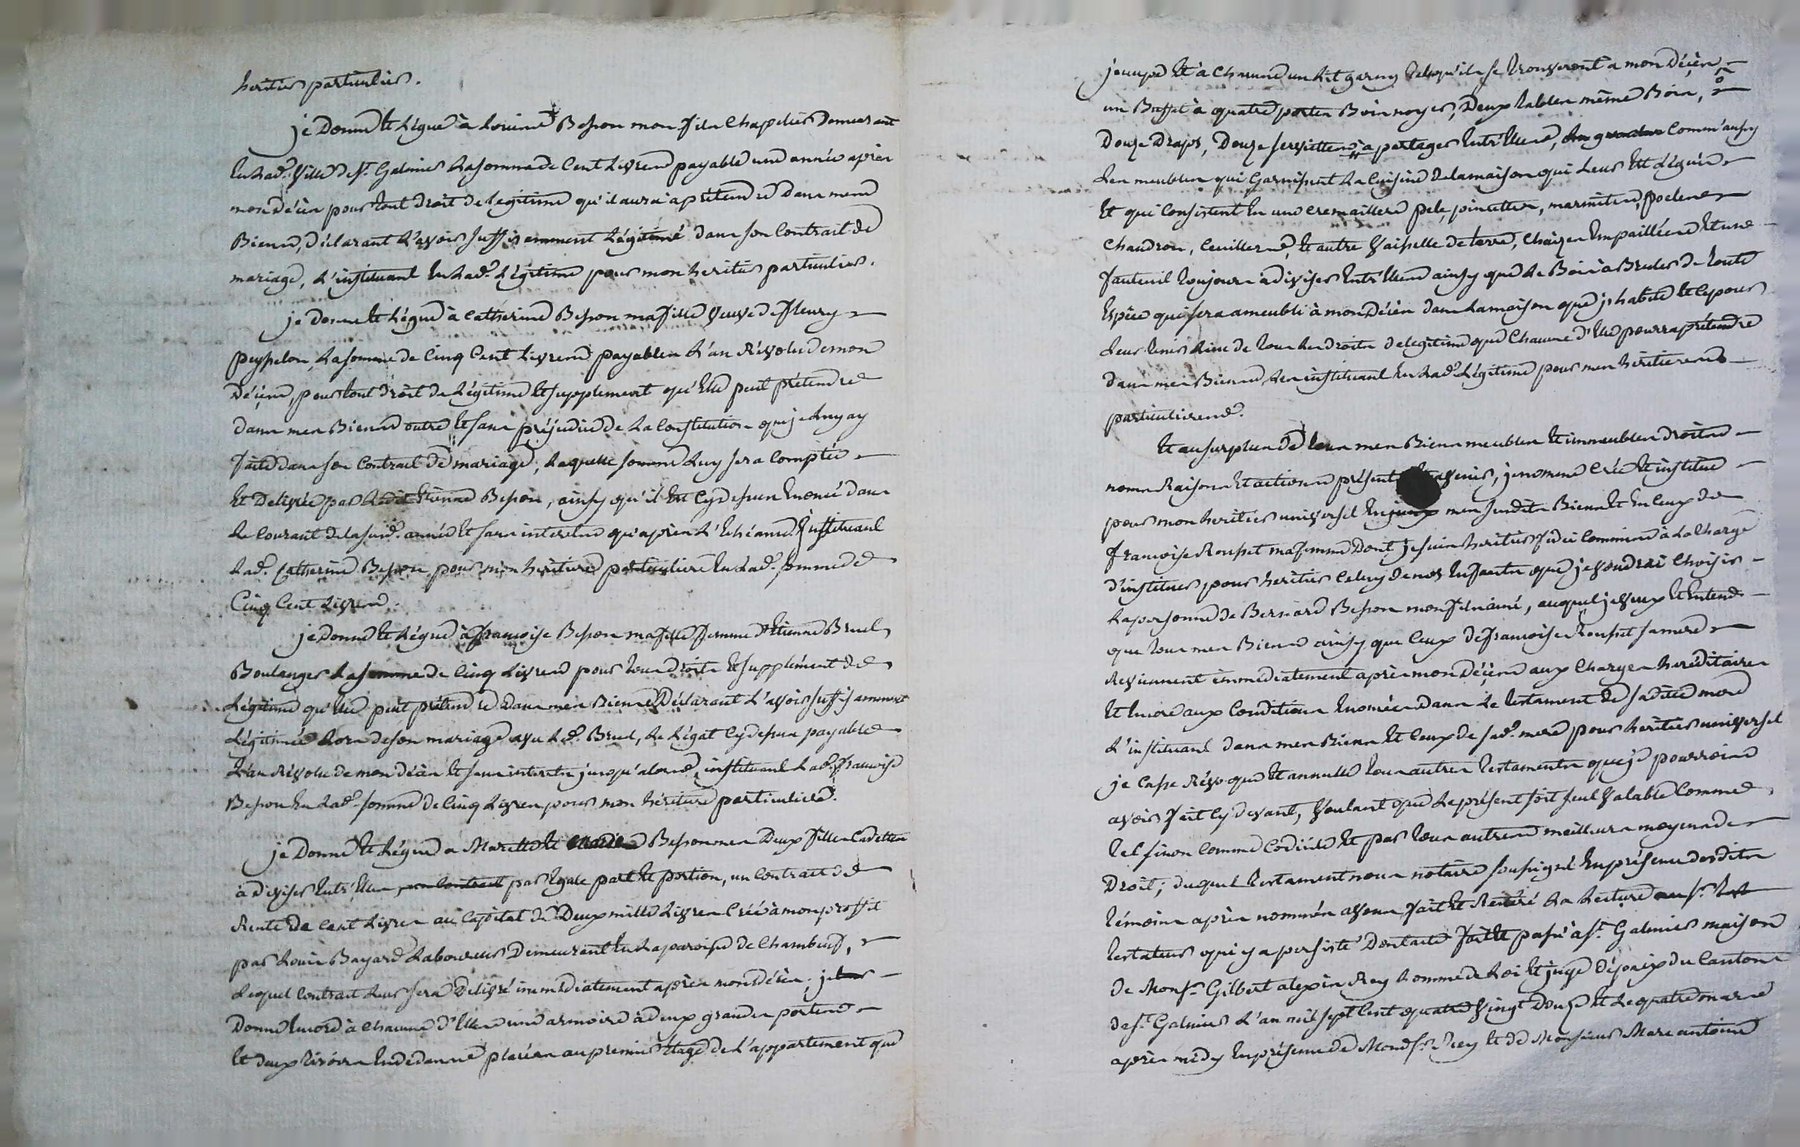 heritier particulier.
je Donne et Légue à Besson mon fils Chapelier Demeurant
en lad.e Ville de St. Galmier la somme de Cent Livres payable une année après
mon décès pour tout droit de légitime qu'il aura à prétendre dans mes
Biens, déclarant l'avoir suffisemment légitimé dans son Contrait de
mariage, l'instituant en lad.e légitime pour mon heritier particulier.
je donne et légue à Catherine Besson ma fille veuve de fleury
la somme de Cinq Cent Livres payables l'an Révolu de mon
Décès, pour tout droit de Légitime et supplement qu'elle peut prétendre
dans mes Biens outre et sans préjudice de la Constitution que je luy ay
faite dans son Contrait de mariage, laquelle somme luy sera Comptée
et Délivrée par ledit Etienne Besson, ainsy qu'il est cy dessus énoncé dans
le Courant de la sud.e année et sans interets qu'après l'echéance, instituant
lad.e Catherine Besson pour mon heritiere particuliere en lad.e somme de
Cinq Cent Livres.
je donne et légue à françoise Besson ma fille femme d'Etienne Bruel
Boulanger la somme de Cinq Livres pour tous droits et supplément de
Légitime qu'elle peut prétendre dans mes Biens Déclarant l'avoir suffisamment
Légitimée lors de son mariage avec led. Bruel, le légat cy dessus payable
l'an Révolu de mon décès et sans interets jusqu'alors, instituant lad.e françoise
Besson en lad.e somme de Cinq Livres pour mon héritiere particuliere.
je Donne et Légue a et Besson mes Deux filles Cadettes
à diviser entr'elles par Egale part et portion, un Contrait de
Rente de Cent Livres au Capital de Deux mille Livres Créé à mon proffit
par Louis Bayard Laboureur Demeurant en la paroisse de Chambeuf,
lequel Contrait leur sera Délivré immédiatement après mon décès; je
Donne encore à Chacune d'Elles une armoire à deux grandes portes
et deux tiroirs en dedans placées au premier étage de l'appartement que
j'occupe et à Chacune un Lit garny tels qu'ils se trouveront a mon Décès
un Buffet à quatre portes Bois noyer, Deux tables même Bois,
Douze Draps, Douze serviettes a partager entr'Elles, Comm'aussy
Les meubles qui Garnissent la Cuisine de la maison qui leur est Léguée
et qui Consistent en une cremaillere pele, pincettes, marmites, poelles
Chaudron, Cuilleres, et autre Vaisselle de terre, Chaizes Empaillées et une
fauteuil toujours à diviser entr'Elles ainsy que le Bois à Bruler de toute
Espèce qui sera ameubli à mon Décès dans la maison que j'habite et ce pour
leur tenir lieu de tous les droits de legitime que Chacune d'Elles pourra prétendre
dans mes Biens, les instituant en lad.e Légitime pour mes héritieres
particulieres.
Et au surplus de tous mes Biens meubles et immeubles droits
noms Raisons et actions présents et avenir, je nomme Crée et institue
pour mon heritier universel en mes susdits Biens et en Ceux de
françoise Rousset ma femme Dont je suis heritier fidei Commis à la Charge
d'instituer pour heritier Celuy de nos Enfants que je voudrai Choisir
la personne de Bernard Besson mon fils ainé, auquel je veux et Entend
que tous mes Biens ainsy que Ceux de françoise Rousset sa mere
Reviennent immediatement après mon Décès aux Charges hereditaires
et Encore aux Conditions Enoncées dans le testament de sadite mere
l'instituant dans mes Biens et Ceux de sad.e mere pour heritier universel
je Casse Révoque et annulle tous autres testaments que je pourrois
avoir fait cy devant, Voulant que le présent soit seul Valable Comme
tel sinon Comme Codicile et par tous autres meilleurs moyens de
Droit; duquel testament nous notaire soussigné En présence desdits
témoins après nommés avons fait et Reitéré la lecture
testateur qui y a persisté Dont acte fait et passé à St. Galmier maison
de Monsr. Gilbert alexis Rey homme de Loi et juge de paix du Canton
de St. Galmier l'an mil sept Cent quatre vingt Douze et le quatre mars
après midy En présence de Monsr. Rey et de Monsieur Marc antoine